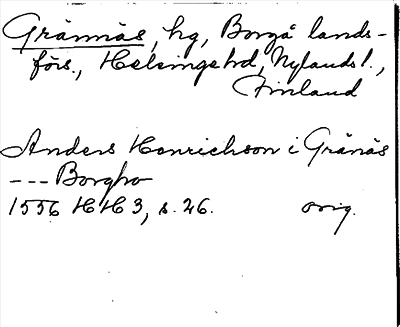 Grännäs, hg, Borgå lands-
förs., Helsinge hd, Nylands l.,
Finland
Anders Henrichson i Gränäs
--- Borgho
1556 HH 3, s. 26. orig.